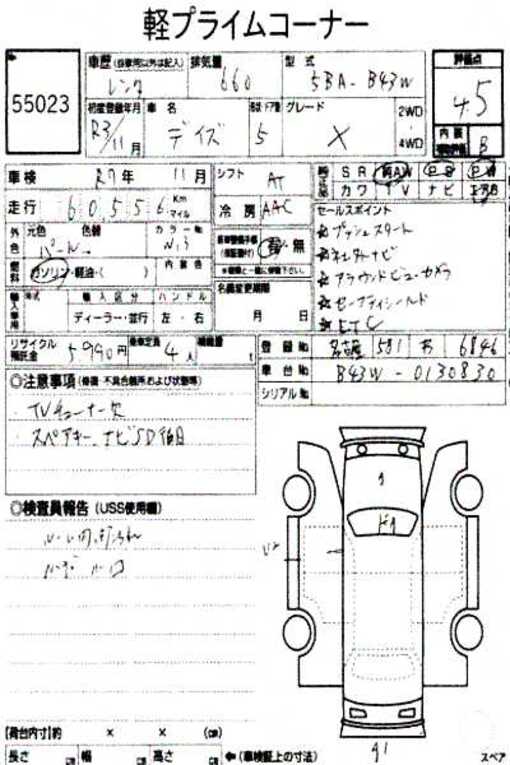 軽プライムコーナー
55023
車歴 (自家用以外は記入) 排気量 型式 評価点
レンタ 660 5BA-B43W 4.5
初度登録年月 車名 形状・ドア数 グレード 2WD・4WD
R3/11月 デイズ 5 X
内装 B
車検 R7年 11月 シフト AT
SR AW PS PW
カワ TV ナビ エアB
走行 60,556 Km マイル 冷房 AAC
セールスポイント
プッシュスタート
ナビ
アラウンドビューカメラ
セーフティシールド
ETC
外色 元色 色替 カラーNo
パール
燃料 ガソリン・軽油・( ) 内装色
有・無
名義変更期限
月 日
輸入車用 年式 輸入区分 ハンドル
ディーラー・並行 左・右
リサイクル預託金 5990円 乗車定員 4人 積載量 t
登録No 名古屋 581 お 6846
車台No B43W-0130830
シリアルNo
◎注意事項 (修復・不具合箇所および状態等)
TVチューナー欠
スペアキー、ナビSD
◎検査員報告 (USS使用欄)
【荷台内寸】約 × × (cm)
長さ cm 幅 cm 高さ cm ←(車検証上の寸法) スペア